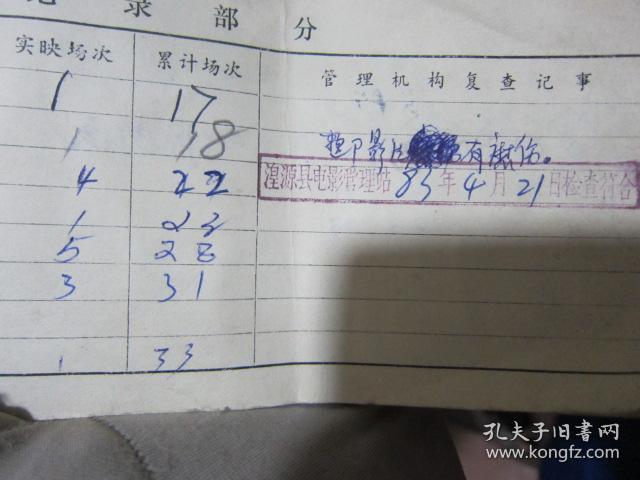 录部分
实映场次 累计场次 管理机构复查记事
1 17
1 18
整个影片有磨伤。
4 22
湟源县电影管理站 83年4月21日检查符合
1 23
5 28
3 31
1 33
孔夫子旧书网
kongfz.com